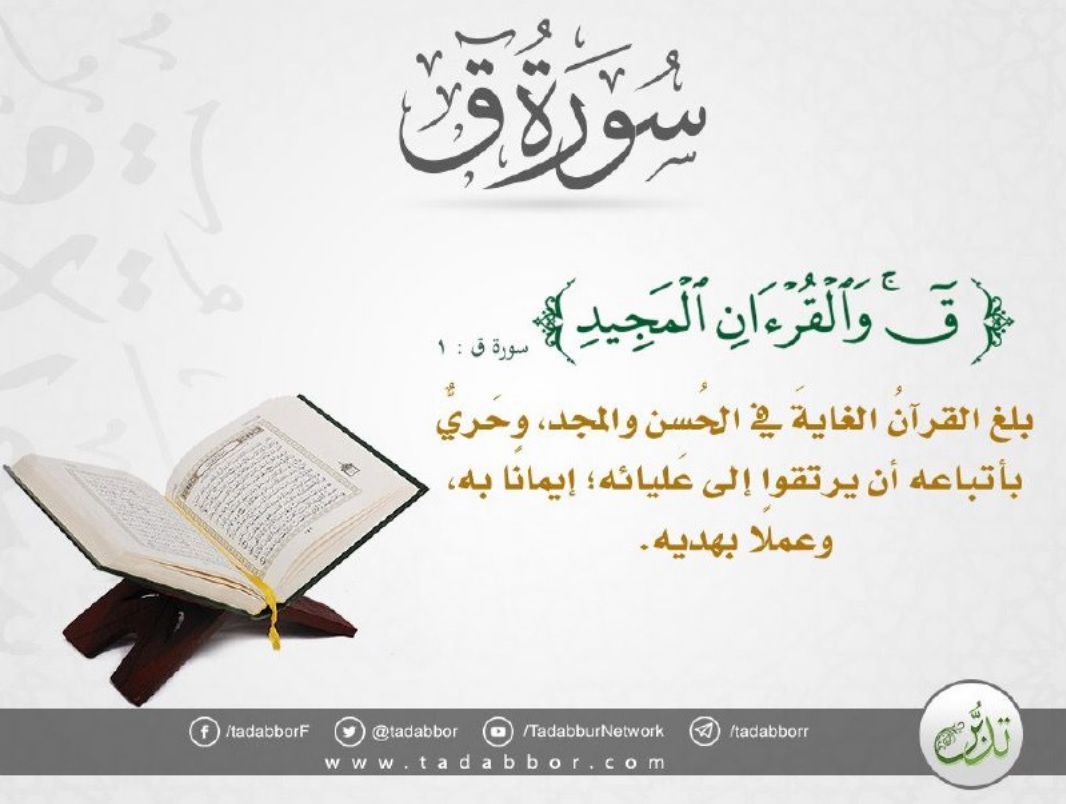 سُورَةُ ق
﴿ قٓ ۚ وَٱلۡقُرۡءَانِ ٱلۡمَجِيدِ ﴾ سورة ق : ١
بلغ القرآنُ الغايةَ في الحُسن والمجد، وحَريٌّ
بأتباعه أن يرتقوا إلى عَليائه؛ إيمانًا به،
وعملًا بهديه.
/tadabborF @tadabbor /TadabburNetwork /tadabborr
www.tadabbor.com
تدبُّر